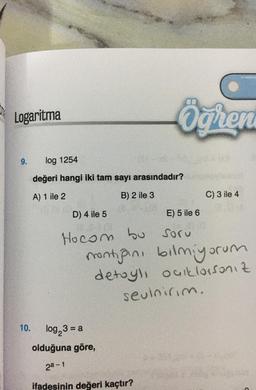 Logaritma
Öğren
9. log 1254
değeri hangi iki tam sayı arasındadır?
A) 1 ile 2 B) 2 ile 3 C) 3 ile 4
D) 4 ile 5 E) 5 ile 6
Hocam bu soru
mantığını bilmiyorum
detaylı açıklarsanız
sevinirim.
10. log₂3 = a
olduğuna göre,
2ᵃ⁻¹
ifadesinin değeri kaçtır?